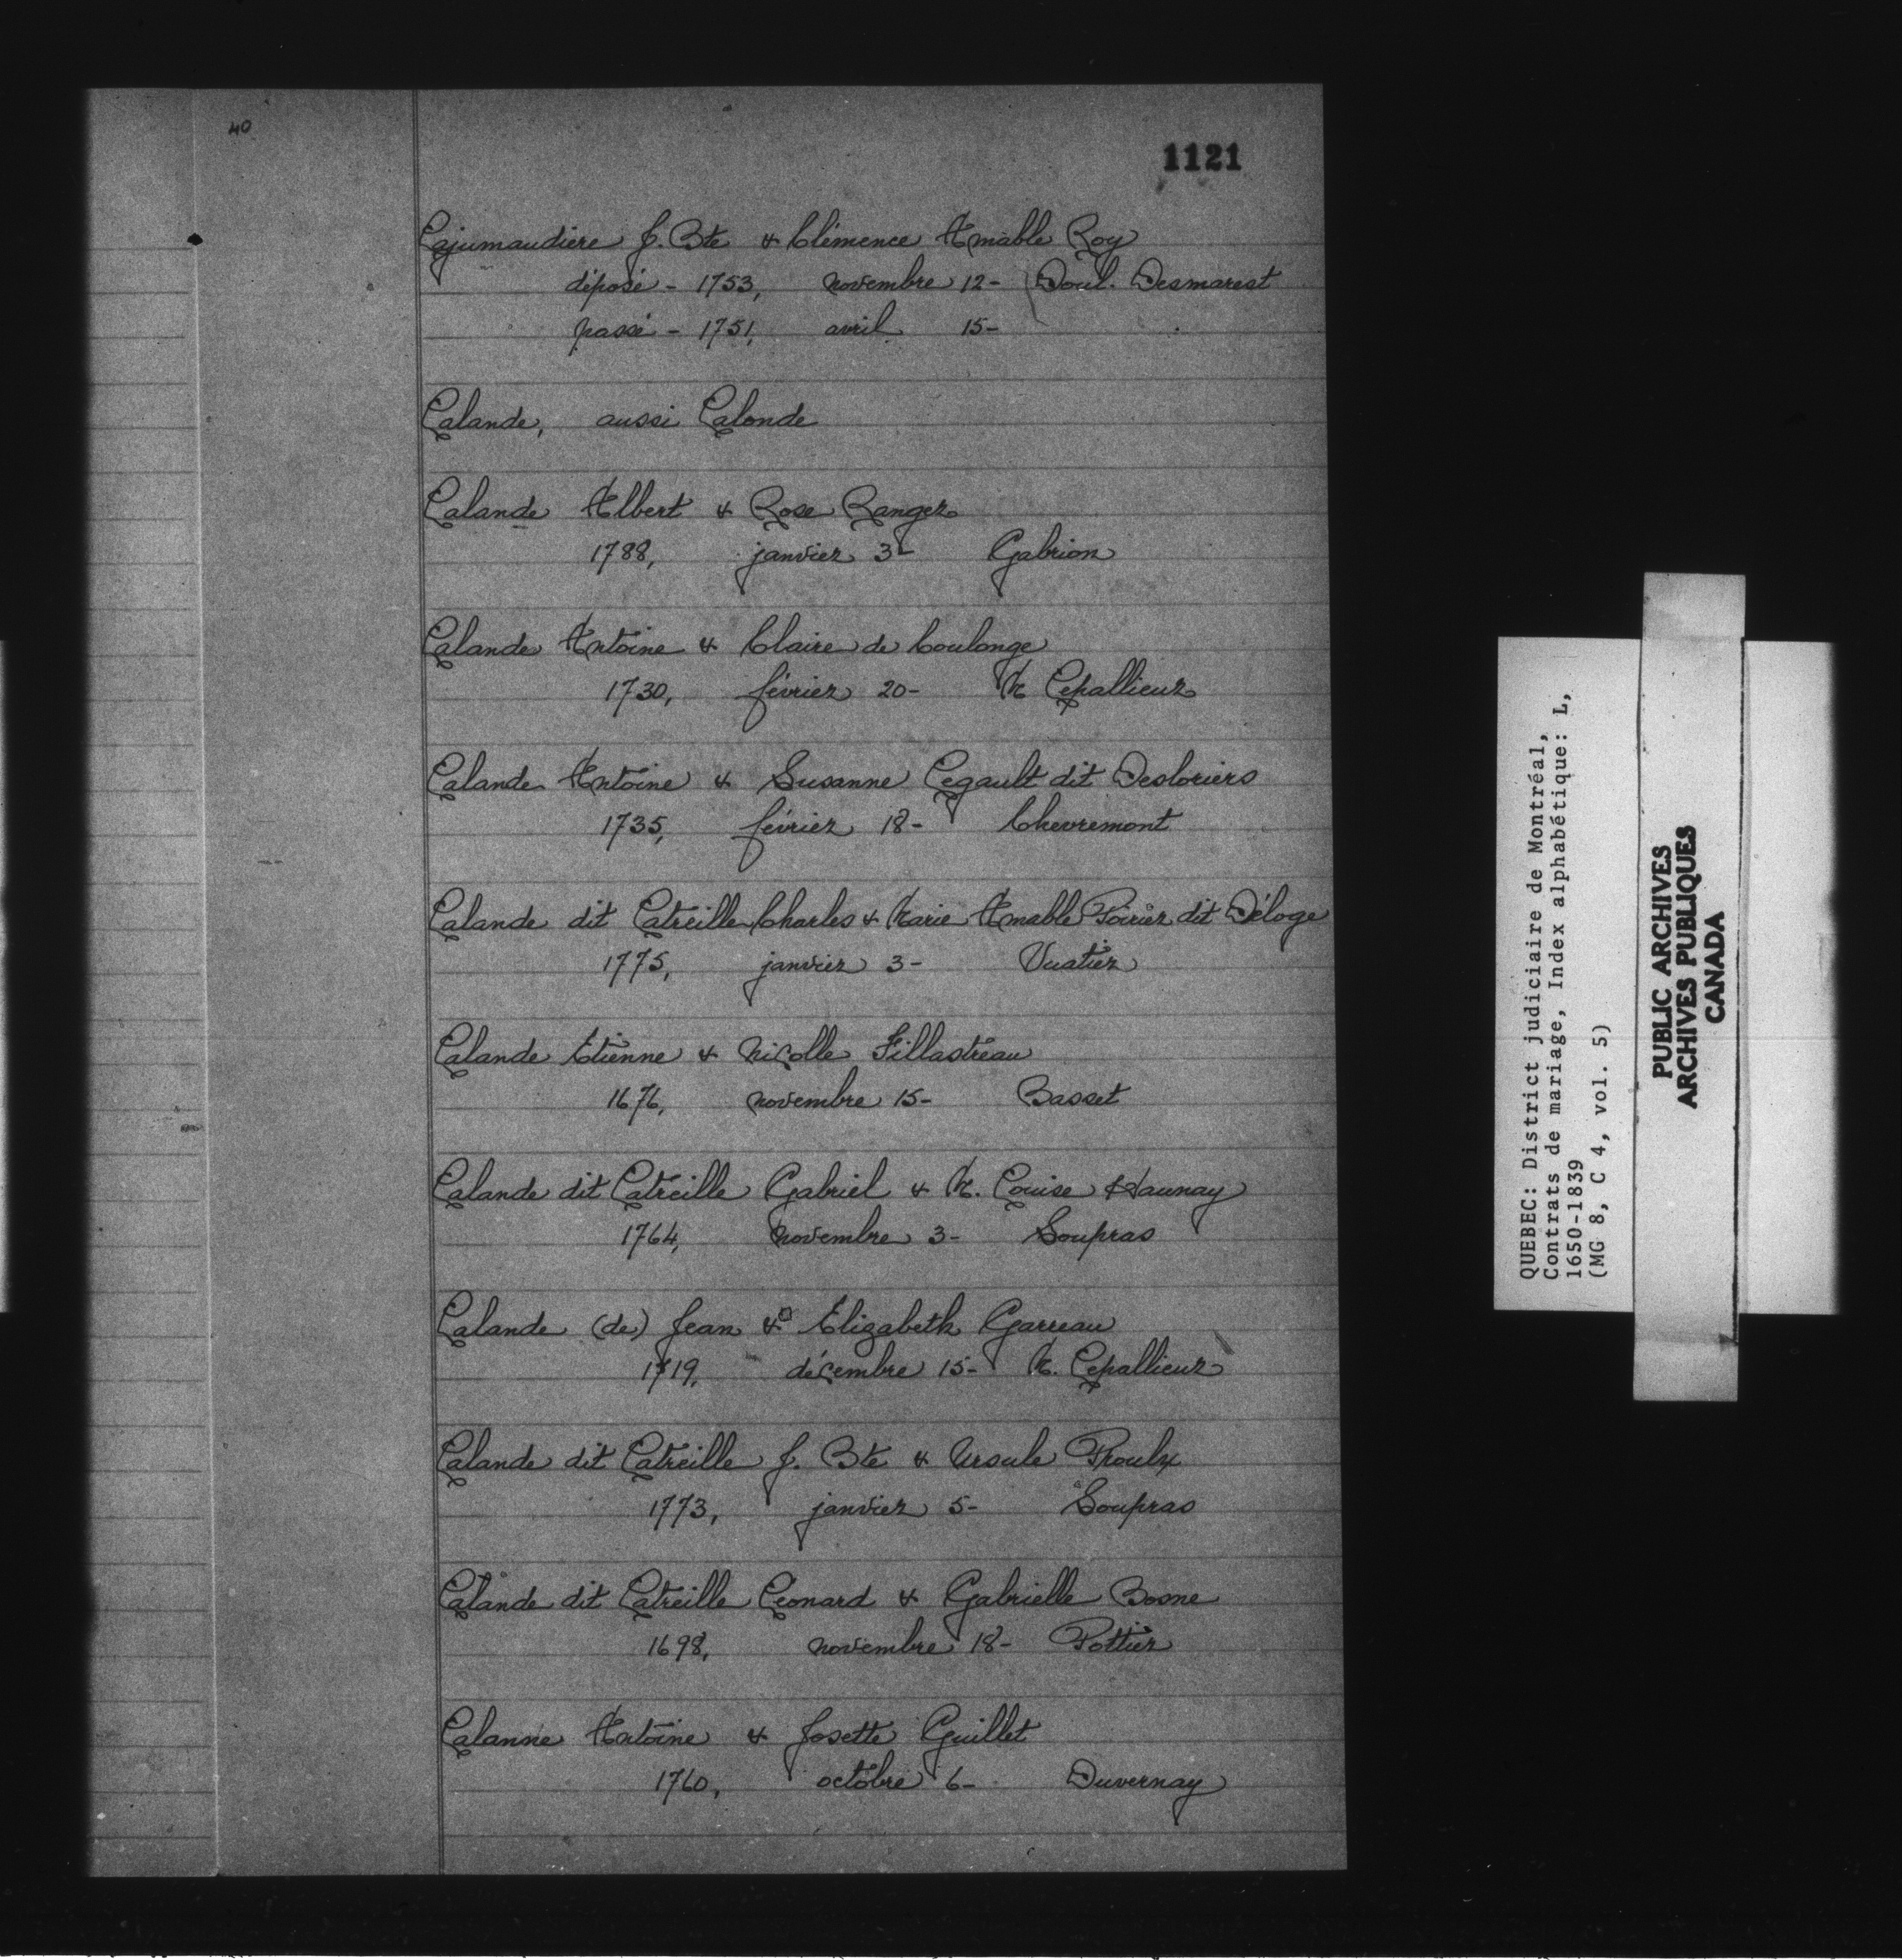 40
1121
Lajumaudière J. Bte & Clémence Amable Roy
déposé - 1753, novembre 12 - Doul. Desmarest
passé - 1751, avril 15 -
Lalande, aussi Lalonde
Lalande Albert & Rose Ranger
1788, janvier 3 - Gabrion
Lalande Antoine & Claire de Coulonge
1730, février 20 - M Lepallieur
Lalande Antoine & Susanne Legault dit Desloriers
1735, février 18 - Chevremont
Lalande dit Latreille Charles & Marie Amable Poirier dit Déloge
1775, janvier 3 - Vuatier
Lalande Etienne & Nicolle Fillastreau
1676, novembre 15 - Basset
Lalande dit Latreille Gabriel & M. Louise Haunay
1764, novembre 3 - Soupras
Lalande (de) Jean & Elizabeth Garreau
1719, décembre 15 - M. Lepallieur
Lalande dit Latreille J. Bte & Ursule Proulx
1773, janvier 5 - Soupras
Lalande dit Latreille Léonard & Gabrielle Bosne
1698, novembre 18 - Pottier
Lalanne Antoine & Josette Guillet
1760, octobre 6 - Duvernay
QUEBEC: District judiciaire de Montréal,
Contrats de mariage, Index alphabétique: L,
1650-1839
(MG 8, C 4, vol. 5)
PUBLIC ARCHIVES
ARCHIVES PUBLIQUES
CANADA